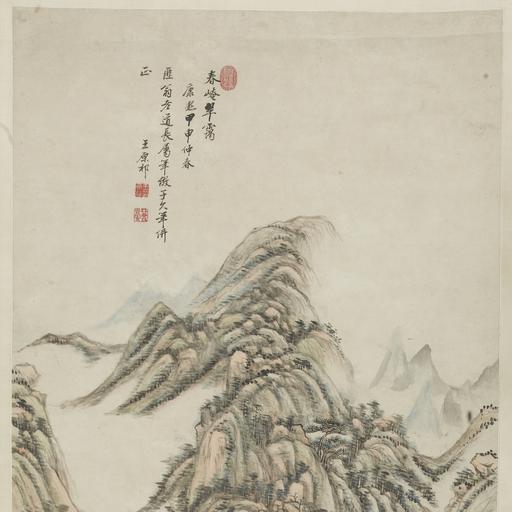 春翠靄
康熙甲申仲春
翁老道長屬筆倣子久筆併
正
王原祁